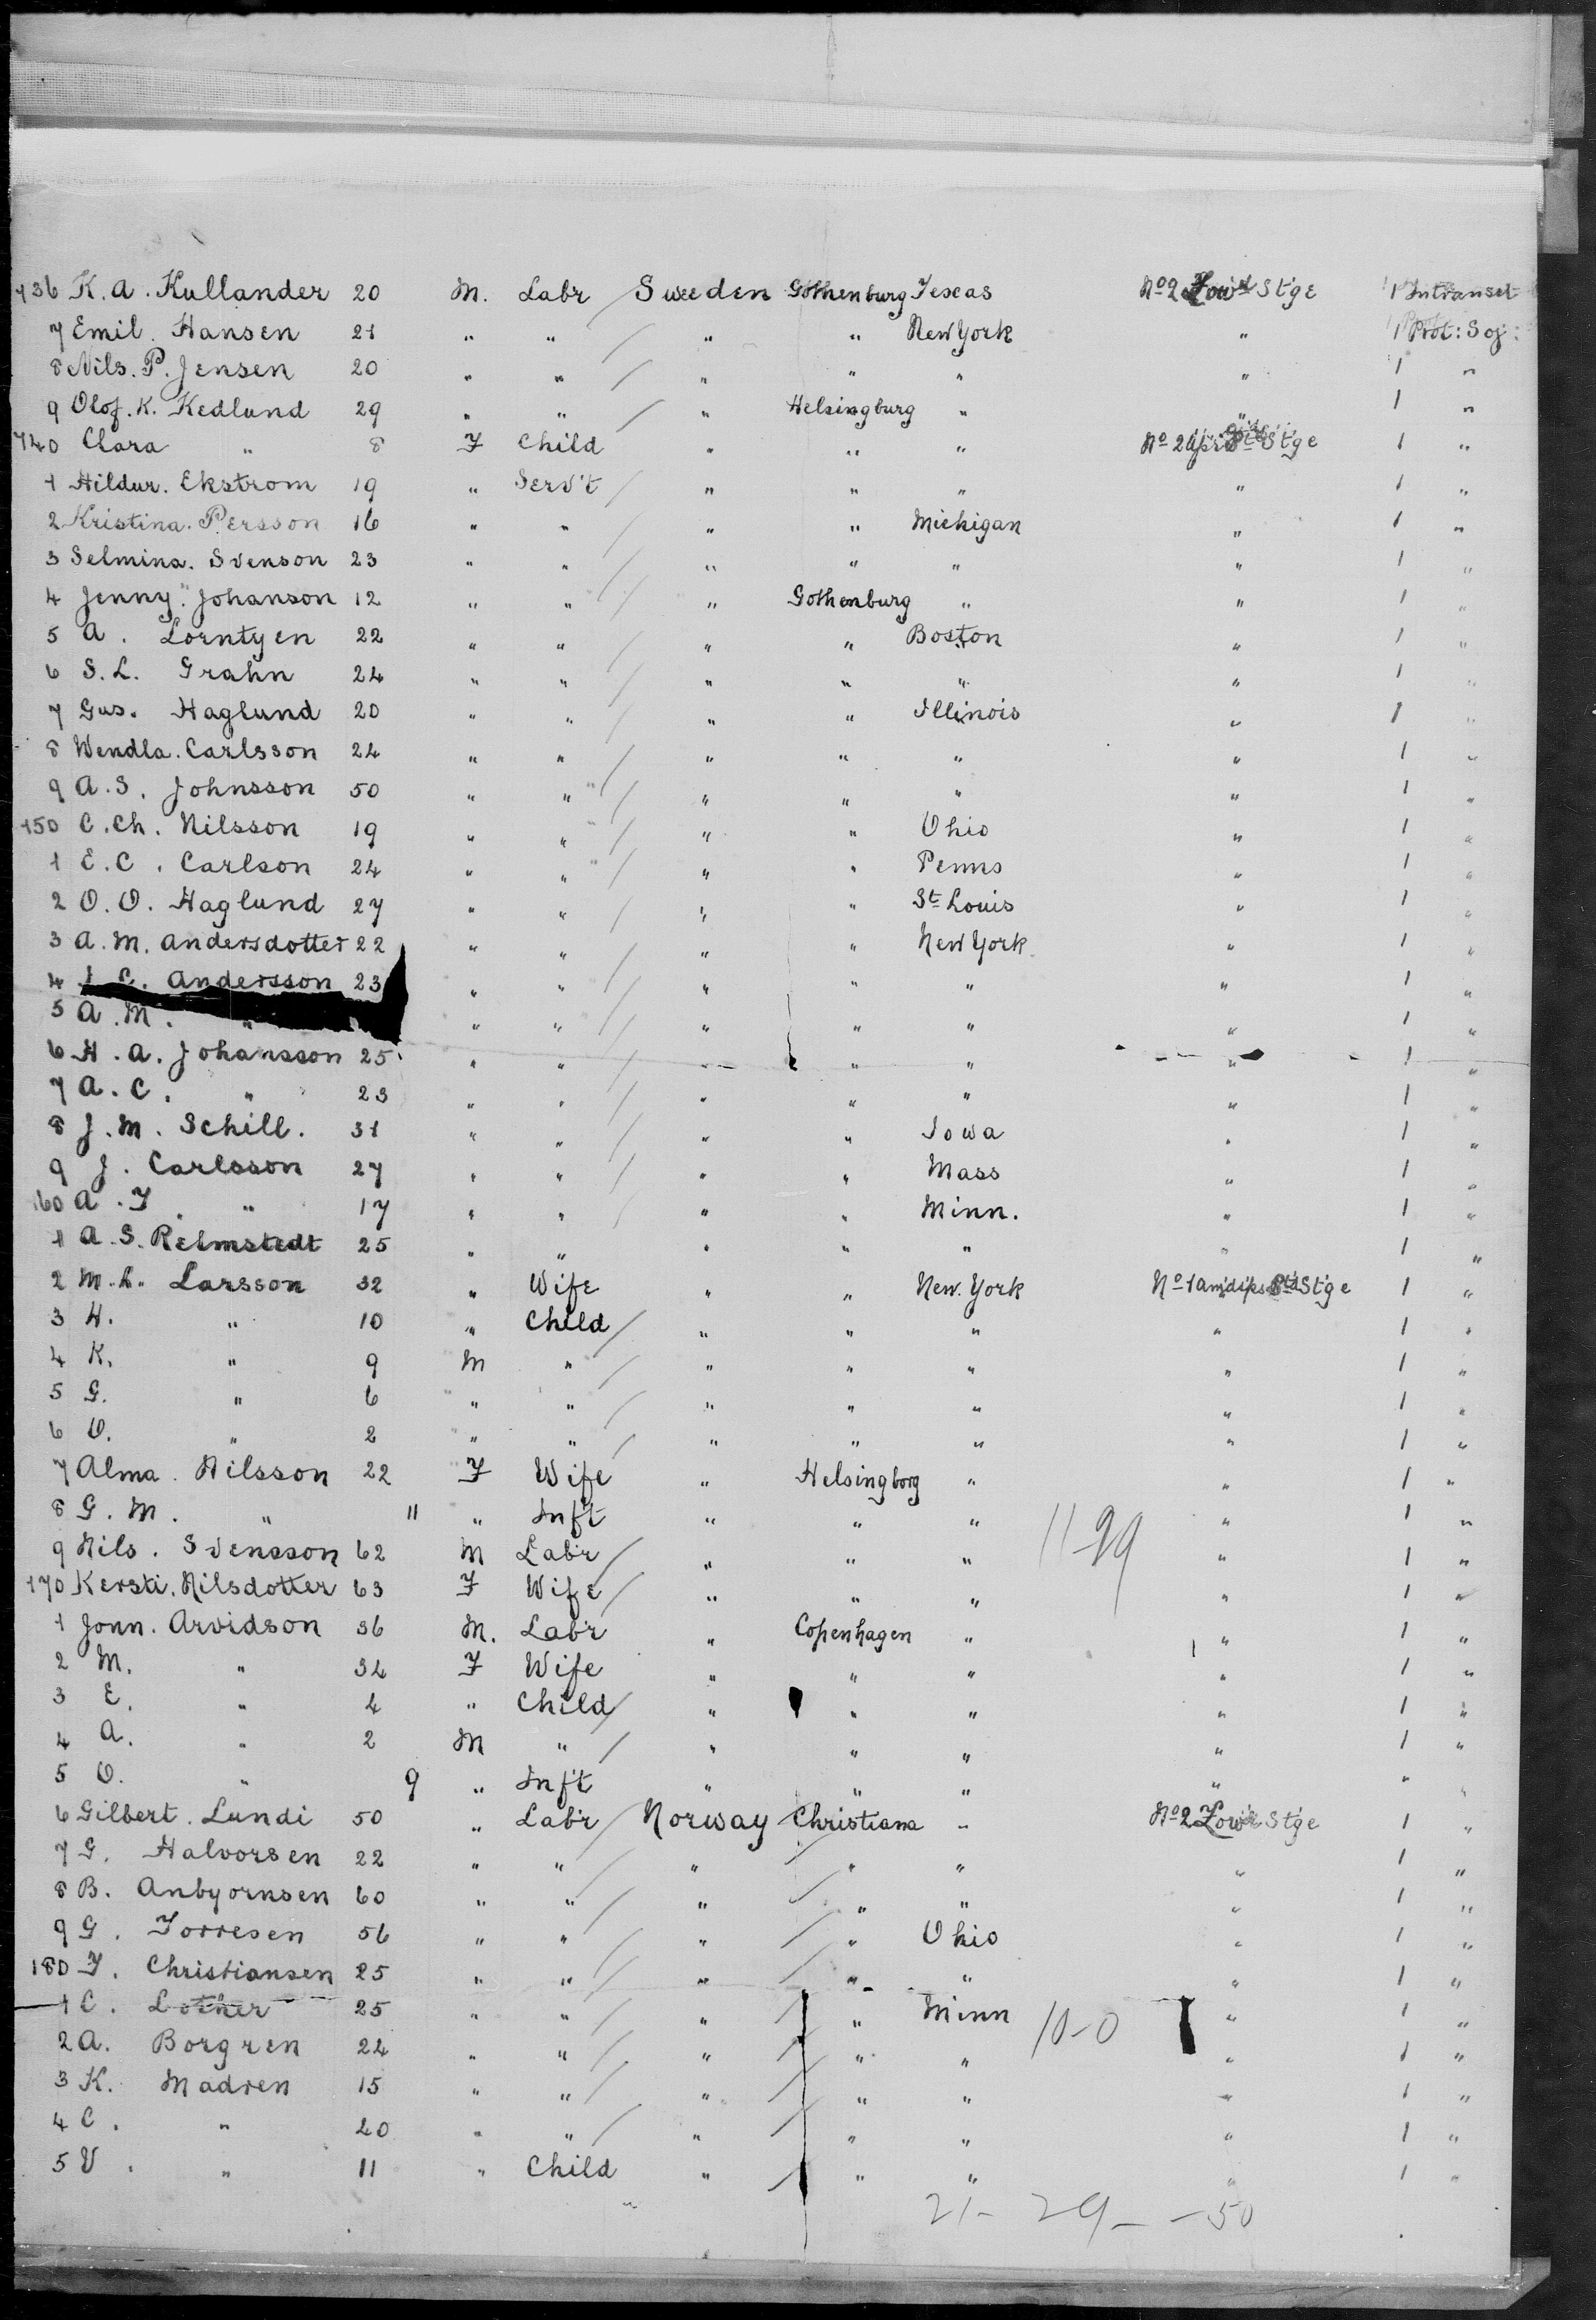 736 K. A. Kullander 20 M. Labr Sweden Gothenburg Texas No 2 Low'r Stge 1 Intransit
7 Emil. Hansen 21 " " " " New York " 1 Prot: Soj:
8 Nils. P. Jensen 20 " " " " " " 1 "
9 Olof. K. Kedlund 29 " " " Helsingburg " " 1 "
740 Clara " 8 F Child " " " No 2 Stge 1 "
1 Hildur. Ekstrom 19 " Serv't " " " " 1 "
2 Kristina. Persson 16 " " " " Michigan " 1 "
3 Selmina. Svenson 23 " " " " " " 1 "
4 Jenny. Johanson 12 " " " Gothenburg " " 1 "
5 A. Lorntyen 22 " " " " Boston " 1 "
6 S. L. Grahn 24 " " " " " " 1 "
7 Gus. Haglund 20 " " " " Illinois " 1 "
8 Wendla. Carlsson 24 " " " " " " 1 "
9 A. S. Johnsson 50 " " " " " " 1 "
750 C. Ch. Nilsson 19 " " " " Ohio " 1 "
1 E. C. Carlson 24 " " " " Penns " 1 "
2 O. O. Haglund 27 " " " " St Louis " 1 "
3 A. M. Andersdotter 22 " " " " New York " 1 "
4 C. Andersson 23 " " " " " " 1 "
5 A. M. " " " " " " " 1 "
6 H. A. Johansson 25 " " " " " " 1 "
7 A. C. " 23 " " " " " " 1 "
8 J. M. Schill. 31 " " " " Iowa " 1 "
9 J. Carlsson 27 " " " " Mass " 1 "
160 A. F. " 17 " " " " Minn. " 1 "
1 A. S. Relmstedt 25 " " " " " " 1 "
2 M. L. Larsson 32 " Wife " " New. York No 1 amidships Stge 1 "
3 H. " 10 " Child " " " " 1 "
4 K. " 9 M " " " " " 1 "
5 G. " 6 " " " " " " 1 "
6 O. " 2 " " " " " " 1 "
7 Alma. Nilsson 22 F Wife " Helsingborg " " 1 "
8 G. M. " 11 " Inf't " " " " 1 "
11-29
9 Nils. Svensson 62 M Labr " " " " 1 "
170 Kersti. Nilsdotter 63 F Wife " " " " 1 "
1 Jonn. Arvidson 36 M. Labr " Copenhagen " " 1 "
2 M. " 34 F Wife " " " " 1 "
3 E. " 4 " Child " " " " 1 "
4 A. " 2 M " " " " " 1 "
5 O. " 9 " Inf't " " " " " "
6 Gilbert. Lundi 50 " Labr Norway Christiana " No 2 Low'r Stge 1 "
7 G. Halvorsen 22 " " " " " " 1 "
8 B. Anbyornsen 60 " " " " " " 1 "
9 G. Torresen 56 " " " " Ohio " 1 "
180 F. Christiansen 25 " " " " " " 1 "
1 C. Lother 25 " " " " Minn " 1 "
10-0
2 A. Borgren 24 " " " " " " 1 "
3 K. Madren 15 " " " " " " 1 "
4 C. " 20 " " " " " " 1 "
5 V. " 11 " Child " " " " 1 "
21- 29- -50